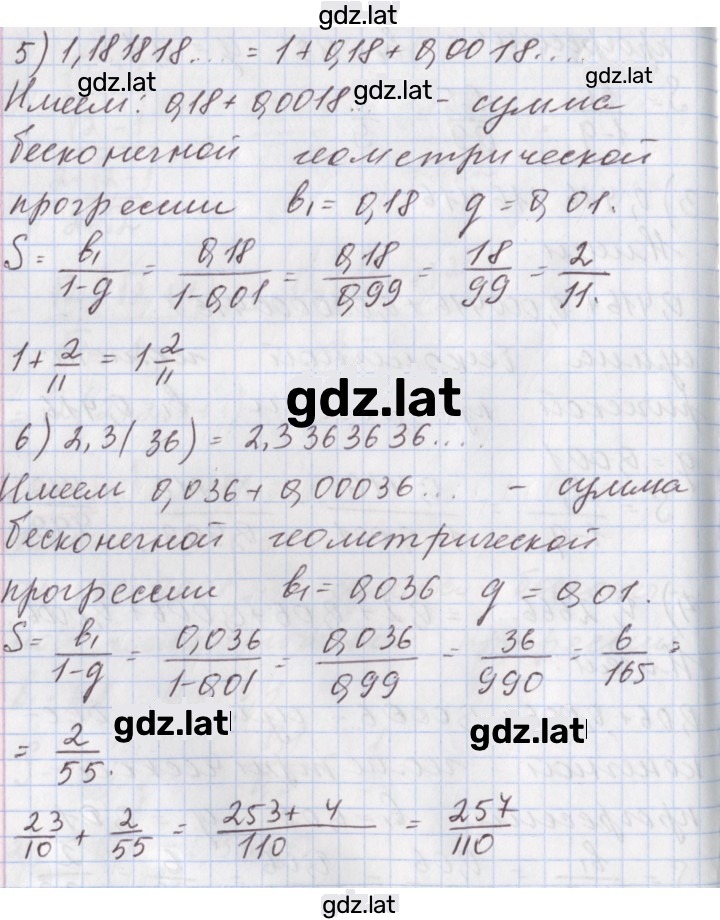 gdz.lat
5) 1,181818... = 1 + 0,18 + 0,0018....
gdz.lat gdz.lat
Имеем: 0,18 + 0,0018... - сумма
бесконечной геометрической
прогрессии b₁ = 0,18 q = 0,01.
S = b₁/(1-q) = 0,18/(1-0,01) = 0,18/0,99 = 18/99 = 2/11.
1 + 2/11 = 1 2/11
gdz.lat
6) 2,3(36) = 2,3363636....
Имеем 0,036 + 0,00036... - сумма
бесконечной геометрической
прогрессии b₁ = 0,036 q = 0,01.
S = b₁/(1-q) = 0,036/(1-0,01) = 0,036/0,99 = 36/990 = 6/165 =
gdz.lat gdz.lat
= 2/55.
23/10 + 2/55 = (253 + 4)/110 = 257/110
gdz.lat